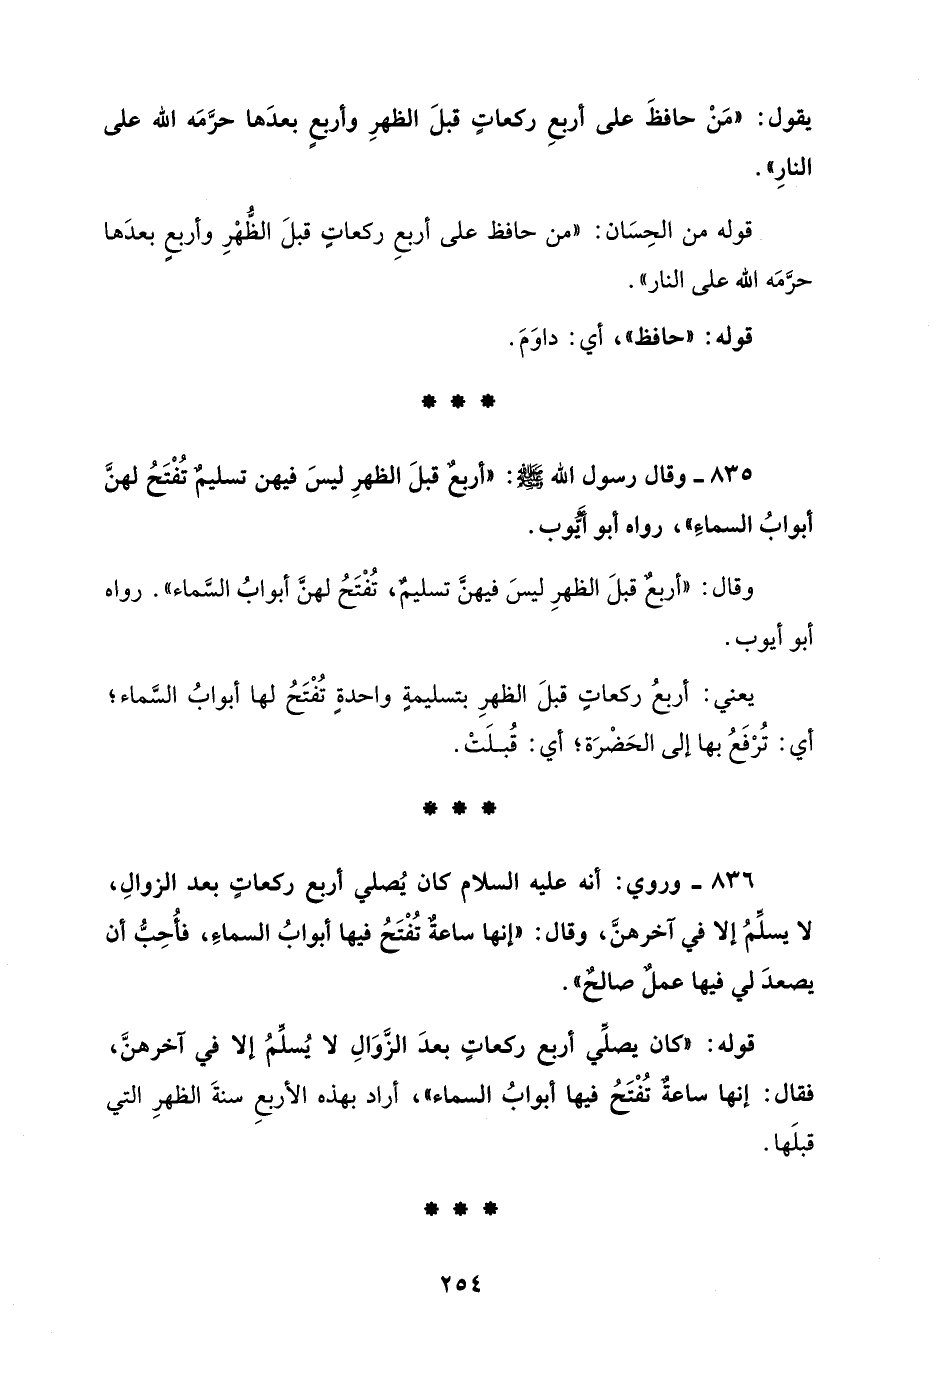 يقول: «مَنْ حافظَ على أربعِ ركعاتٍ قبلَ الظهرِ وأربعٍ بعدَها حرَّمَه الله على
النارِ».
قوله من الحِسَان: «من حافظ على أربعِ ركعاتٍ قبلَ الظُّهْرِ وأربعٍ بعدَها
حرَّمَه الله على النار».
قوله: «حافظ»، أي: داوَمَ.
* * *
٨٣٥ ـ وقال رسول الله ﷺ: «أربعٌ قبلَ الظهرِ ليسَ فيهن تسليمٌ تُفْتَحُ لهنَّ
أبوابُ السماءِ»، رواه أبو أيُّوب.
وقال: «أربعٌ قبلَ الظهرِ ليسَ فيهنَّ تسليمٌ، تُفْتَحُ لهنَّ أبوابُ السَّماء». رواه
أبو أيوب.
يعني: أربعُ ركعاتٍ قبلَ الظهرِ بتسليمةٍ واحدةٍ تُفْتَحُ لها أبوابُ السَّماء؛
أي: تُرْفَعُ بها إلى الحَضْرَة؛ أي: قُبلَتْ.
* * *
٨٣٦ ـ وروي: أنه عليه السلام كان يُصلي أربع ركعاتٍ بعد الزوالِ،
لا يسلِّمُ إلا في آخرهنَّ، وقال: «إنها ساعةٌ تُفْتَحُ فيها أبوابُ السماءِ، فأُحِبُّ أن
يصعدَ لي فيها عملٌ صالحٌ».
قوله: «كان يصلِّي أربع ركعاتٍ بعدَ الزَّوَالِ لا يُسلِّمُ إلا في آخرهنَّ،
فقال: إنها ساعةٌ تُفْتَحُ فيها أبوابُ السماء»، أراد بهذه الأربعِ سنةَ الظهرِ التي
قبلَها.
* * *
٢٥٤